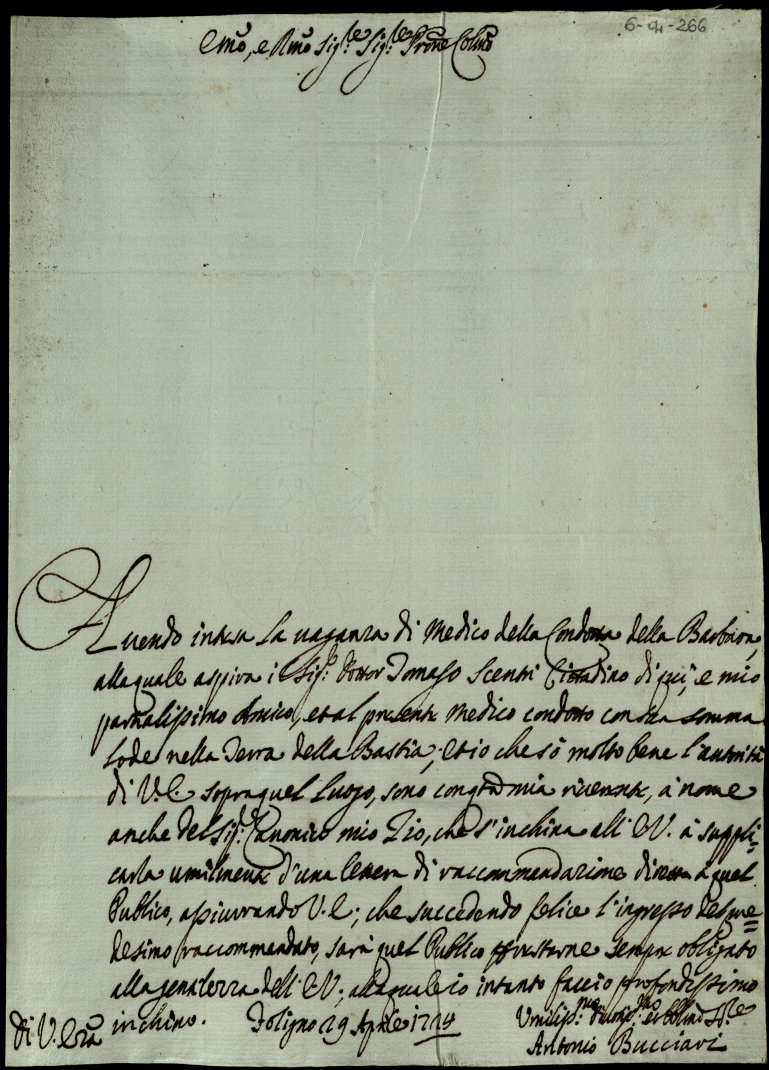 6-4-266
Emõ, e Rmõ Sig.re Sig.re Prõne Colmõ
Auendo intesa la uacanza di Medico della Condotta della Barbara,
alla quale aspira il Sig.r Dottor Tomaso Scenti Cittadino di quì, e mio
parzialissimo Amico, et al presente Medico condotto con sua somma
lode nella Terra della Bastia; et io che sò molto bene l'autorità
di V.E. sopra quel luogo, sono con questa mia riuerente, à nome
anche del Sig.r Canonico mio Zio, che s'inchina all'E.V. à suppli=
carla umilmente d'una lettera di raccommandazione diretta à quel
Publico, assicurando V.E; che succedendo felice l'ingresso del me=
desimo raccommandato, sarà quel Publico per restarne sempre obligato
alla gentilezza dell'E.V; alla quale io intanto faccio profondissimo
inchino. Foligno 29 Aprile 1724
Di V. Em̃a
Umiliss.mo Diuot.mo et Obl.mo S.re
Antonio Bucciari